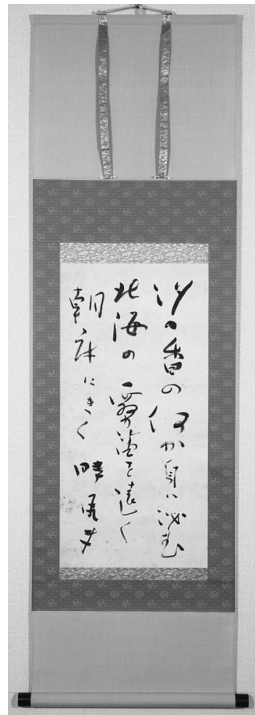 汐の香の何か身に沁む
北海の霧笛を遠く
朝床にきく